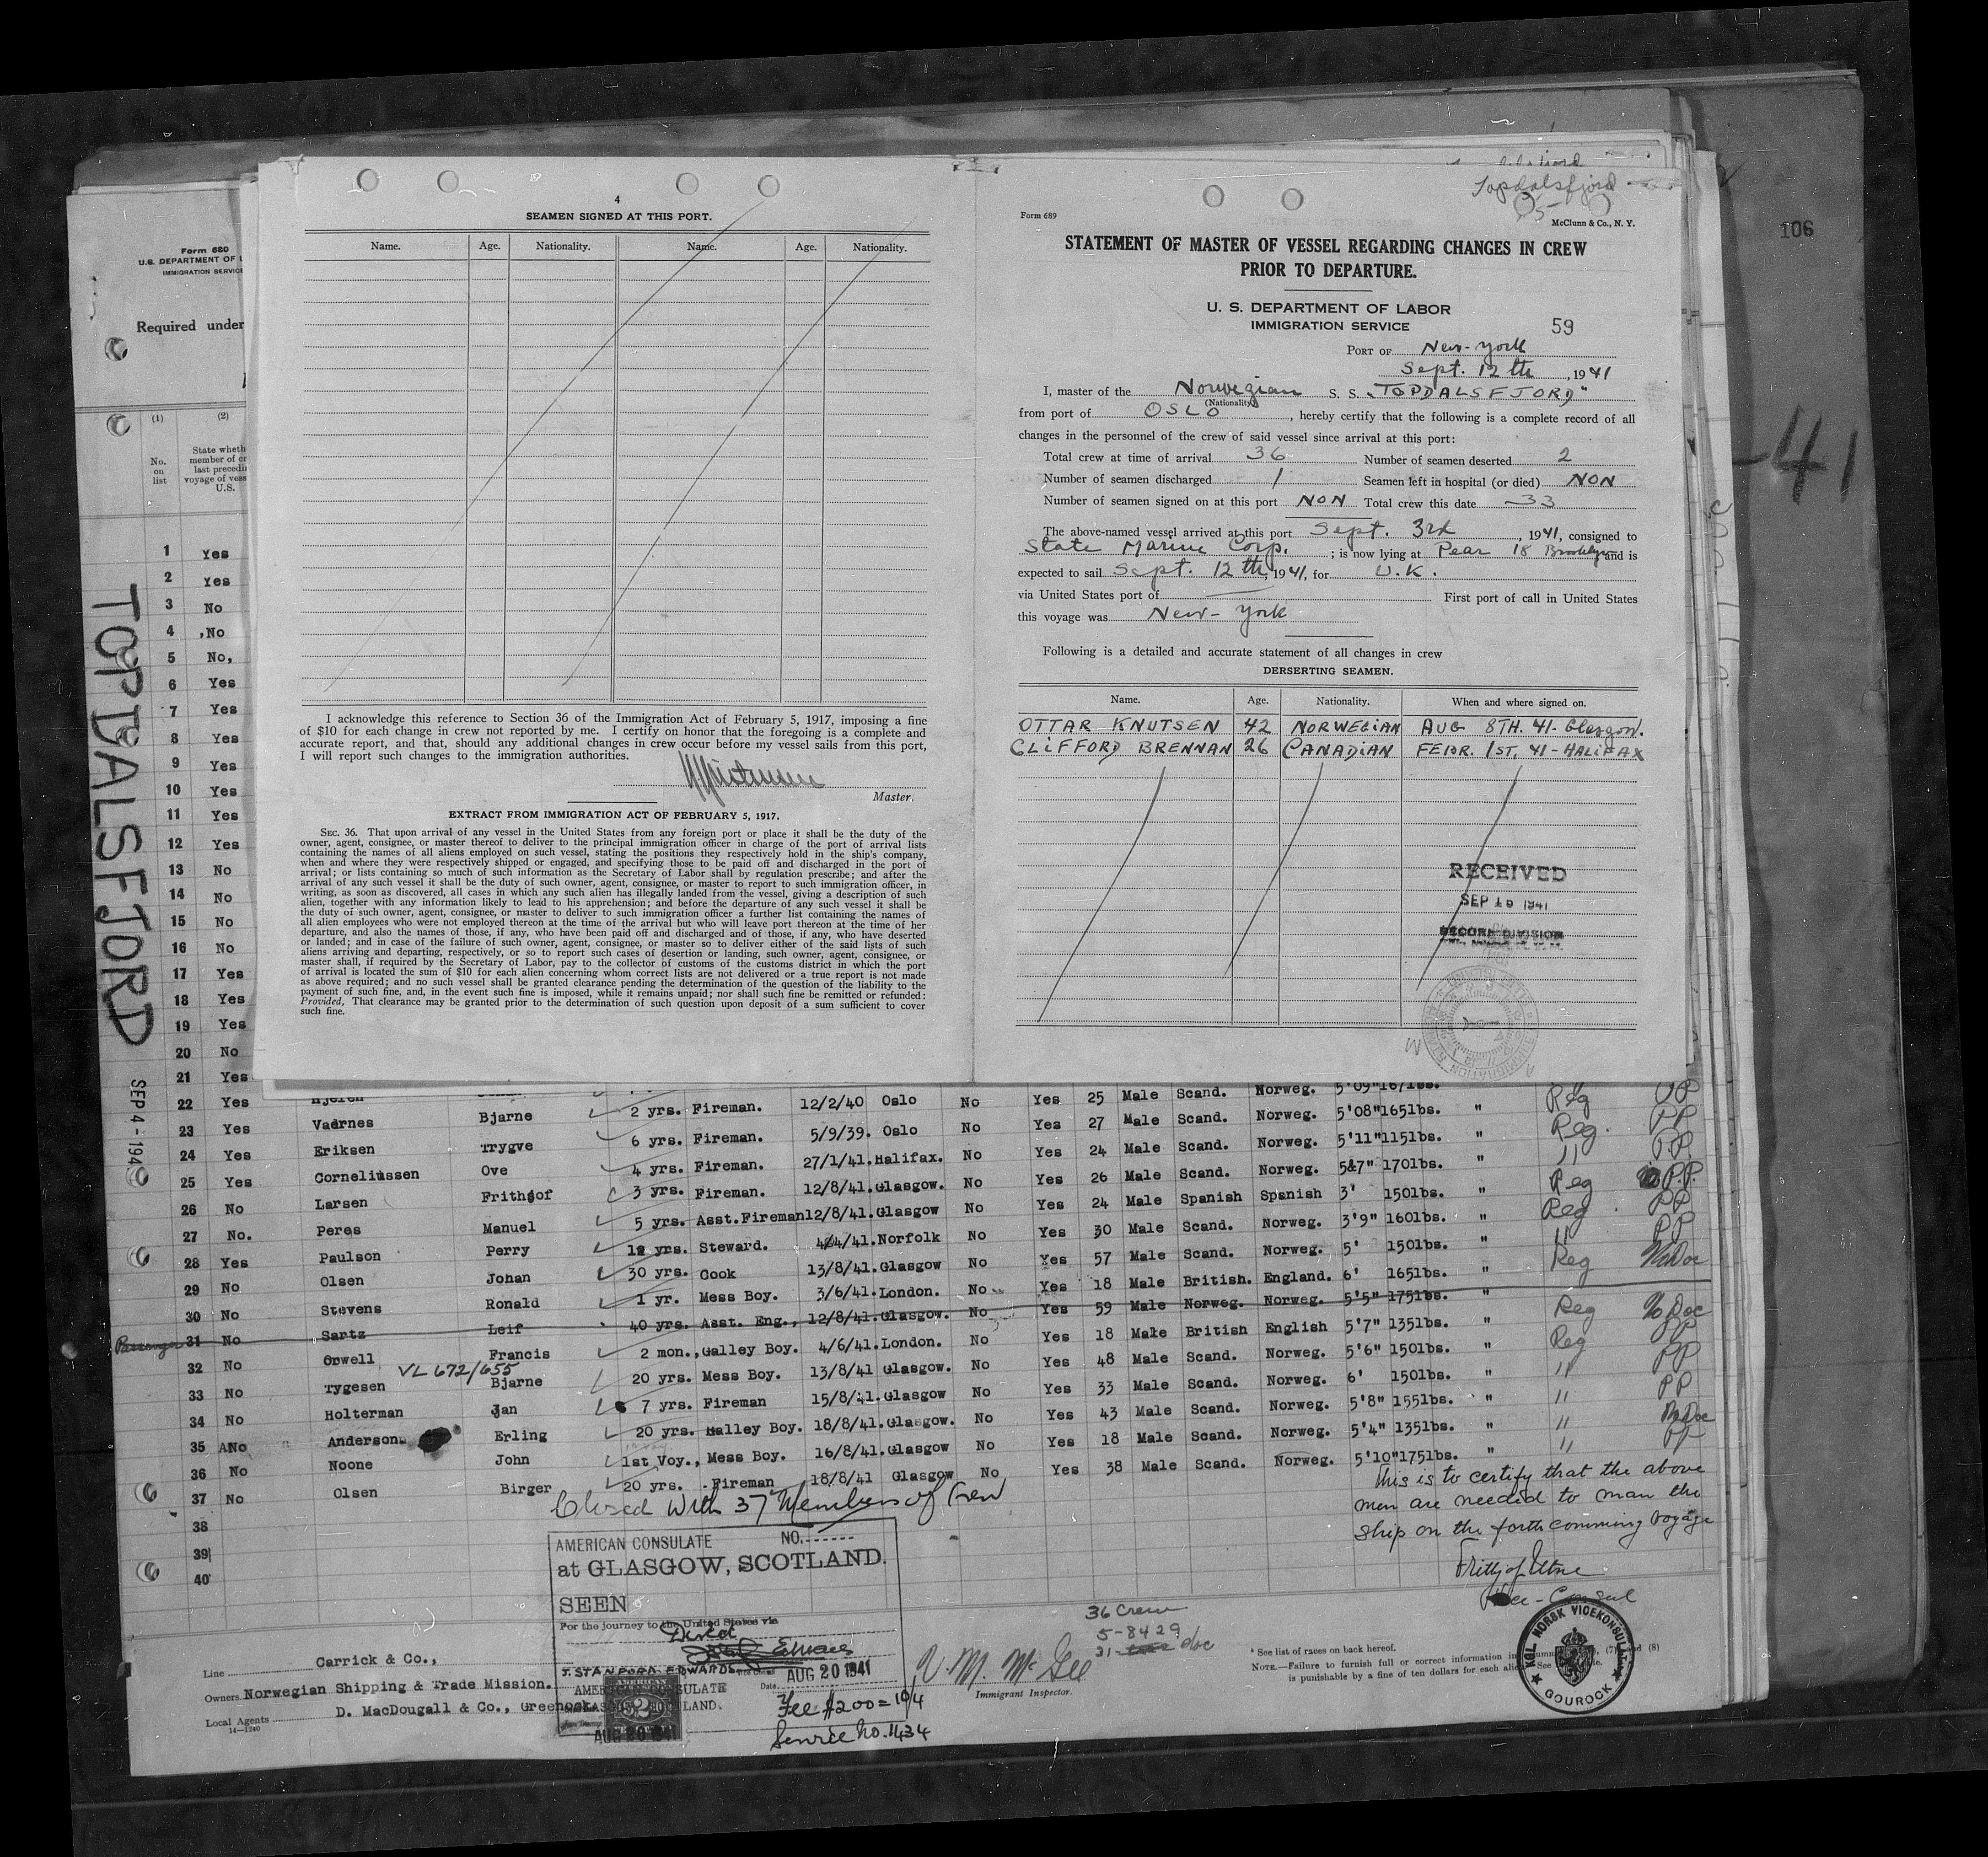 106
-41
TOPDALSFJORD
SEP 4 - 194
Form 680
U.S. DEPARTMENT OF L
IMMIGRATION SERVICE
Required under
(1) (2)
No. on list
State wheth
member of cr
last precedin
voyage of vess
U.S.
1 Yes
2 Yes
3 No
4 ,No
5 No,
6 Yes
7 Yes
8 Yes
9 Yes
10 Yes
11 Yes
12 Yes
13 No
14 No
15 No
16 No
17 Yes
18 Yes
19 Yes
20 No
21 Yes
4
SEAMEN SIGNED AT THIS PORT.
Name. Age. Nationality. Name. Age. Nationality.
I acknowledge this reference to Section 36 of the Immigration Act of February 5, 1917, imposing a fine
of $10 for each change in crew not reported by me. I certify on honor that the foregoing is a complete and
accurate report, and that, should any additional changes in crew occur before my vessel sails from this port,
I will report such changes to the immigration authorities.
Master.
EXTRACT FROM IMMIGRATION ACT OF FEBRUARY 5, 1917.
SEC. 36. That upon arrival of any vessel in the United States from any foreign port or place it shall be the duty of the
owner, agent, consignee, or master thereof to deliver to the principal immigration officer in charge of the port of arrival lists
containing the names of all aliens employed on such vessel, stating the positions they respectively hold in the ship's company,
when and where they were respectively shipped or engaged, and specifying those to be paid off and discharged in the port of
arrival; or lists containing so much of such information as the Secretary of Labor shall by regulation prescribe; and after the
arrival of any such vessel it shall be the duty of such owner, agent, consignee, or master to report to such immigration officer, in
writing, as soon as discovered, all cases in which any such alien has illegally landed from the vessel, giving a description of such
alien, together with any information likely to lead to his apprehension; and before the departure of any such vessel it shall be
the duty of such owner, agent, consignee, or master to deliver to such immigration officer a further list containing the names of
all alien employees who were not employed thereon at the time of the arrival but who will leave port thereon at the time of her
departure, and also the names of those, if any, who have been paid off and discharged and of those, if any, who have deserted
or landed; and in case of the failure of such owner, agent, consignee, or master so to deliver either of the said lists of such
aliens arriving and departing, respectively, or so to report such cases of desertion or landing, such owner, agent, consignee, or
master shall, if required by the Secretary of Labor, pay to the collector of customs of the customs district in which the port
of arrival is located the sum of $10 for each alien concerning whom correct lists are not delivered or a true report is not made
as above required; and no such vessel shall be granted clearance pending the determination of the question of the liability to the
payment of such fine, and, in the event such fine is imposed, while it remains unpaid; nor shall such fine be remitted or refunded:
Provided, That clearance may be granted prior to the determination of such question upon deposit of a sum sufficient to cover
such fine.
Topdalsfjord
Form 689 McClunn & Co., N. Y.
STATEMENT OF MASTER OF VESSEL REGARDING CHANGES IN CREW
PRIOR TO DEPARTURE.
U. S. DEPARTMENT OF LABOR
IMMIGRATION SERVICE 59
PORT OF New-York
Sept. 12th, 1941
I, master of the Norwegian S. S. "TOPDALSFJORD"
(Nationality)
from port of OSLO, hereby certify that the following is a complete record of all
changes in the personnel of the crew of said vessel since arrival at this port:
Total crew at time of arrival 36 Number of seamen deserted 2
Number of seamen discharged 1 Seamen left in hospital (or died) NON
Number of seamen signed on at this port NON Total crew this date 33
The above-named vessel arrived at this port Sept. 3rd, 1941, consigned to
State Marine Corp.; is now lying at Pear 18 Brooklyn and is
expected to sail Sept. 12th, 1941, for U.K.
via United States port of First port of call in United States
this voyage was New-York
Following is a detailed and accurate statement of all changes in crew
DERSERTING SEAMEN.
Name. Age. Nationality. When and where signed on.
OTTAR KNUTSEN 42 NORWEGIAN AUG 8TH. 41-Glasgow.
CLIFFORD BRENNAN 26 CANADIAN FEBR. 1ST, 41-HALIFAX
RECEIVED
SEP 15 1941
RECORD DIVISION
22 Yes Hjeren 12/2/40 Oslo No Yes 25 Male Scand. Norweg. 5'09"167lbs.
23 Yes Vaernes Bjarne 2 yrs. Fireman. 5/9/39. Oslo No Yes 27 Male Scand. Norweg. 5'08"165lbs. " Reg PP
24 Yes Eriksen Trygve 6 yrs. Fireman. 27/1/41.Halifax. No Yes 24 Male Scand. Norweg. 5'11"115lbs. " Reg. PP
25 Yes Corneliussen Ove 4 yrs. Fireman. 12/8/41.Glasgow. No Yes 26 Male Scand. Norweg. 5&7" 170lbs. " " P.P.
26 No Larsen Frithjof 3 yrs. Fireman. 12/8/41.Glasgow No Yes 24 Male Spanish Spanish 3' 150lbs. " Reg P.P.
27 No. Peres Manuel 5 yrs. Asst.Fireman 4/4/41.Norfolk No Yes 30 Male Scand. Norweg. 3'9" 160lbs. " Reg. PP
28 Yes Paulson Perry 12 yrs. Steward. 13/8/41.Glasgow No Yes 57 Male Scand. Norweg. 5' 150lbs. " " PP
29 No Olsen Johan 30 yrs. Cook 3/6/41.London. No Yes 18 Male British. England. 6' 165lbs. " Reg No Doc
30 No Stevens Ronald 1 yr. Mess Boy. 12/8/41.Glasgow. No Yes 59 Male Norweg. Norweg. 5'5" 175lbs. "
Passenger 31 No Sartz Leif 40 yrs. Asst. Eng., 4/6/41.London. No Yes 18 Male British English 5'7" 135lbs. " Reg No Doc
32 No Orwell Francis 2 mon., Galley Boy. 13/8/41 Glasgow. No Yes 48 Male Scand. Norweg. 5'6" 150lbs. " Reg PP
VL 672/655
33 No Tygesen Bjarne 20 yrs. Mess Boy. 15/8/41.Glasgow No Yes 33 Male Scand. Norweg. 6' 150lbs. " " PP
34 No Holterman Jan 7 yrs. Fireman 18/8/41.Glasgow. No Yes 43 Male Scand. Norweg. 5'8" 155lbs. " " PP
35 No Anderson Erling 20 yrs. Galley Boy. 16/8/41.Glasgow No Yes 18 Male Scand. Norweg. 5'4" 135lbs. " " No Doc
36 No Noone John 1st Voy., Mess Boy. 18/8/41 Glasgow No Yes 38 Male Scand. Norweg. 5'10"175lbs. " " PP
37 No Olsen Birger 20 yrs. Fireman
38
39
40
Closed with 37 Members of Crew
This is to certify that the above
men are needed to man the
ship on the forth comming voyage
Vice-Consul
AMERICAN CONSULATE NO.
at GLASGOW, SCOTLAND.
SEEN
For the journey to the United States via
Direct
J. STANFORD EDWARDS
Date AUG 20 1941
AMERICAN CONSULATE
GLASGOW, SCOTLAND.
AUG 20 1941
Fee $2.00 = 10/4
Service No. 1434
36 Crew
5-8429
31 doc
V. M. McGee
Immigrant Inspector.
Line Carrick & Co.,
Owners Norwegian Shipping & Trade Mission.
Local Agents D. MacDougall & Co., Greenock.
14-1240
* See list of races on back hereof.
NOTE.—Failure to furnish full or correct information in columns (7) and (8)
is punishable by a fine of ten dollars for each alien. See
KGL. NORSK VICEKONSULAT
GOUROCK